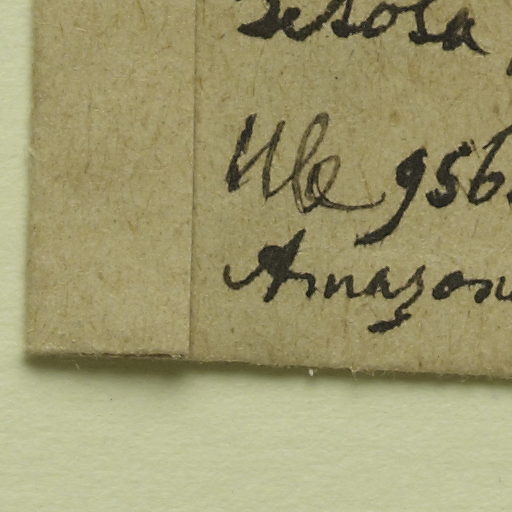 setosa
Ule 956
Amazon